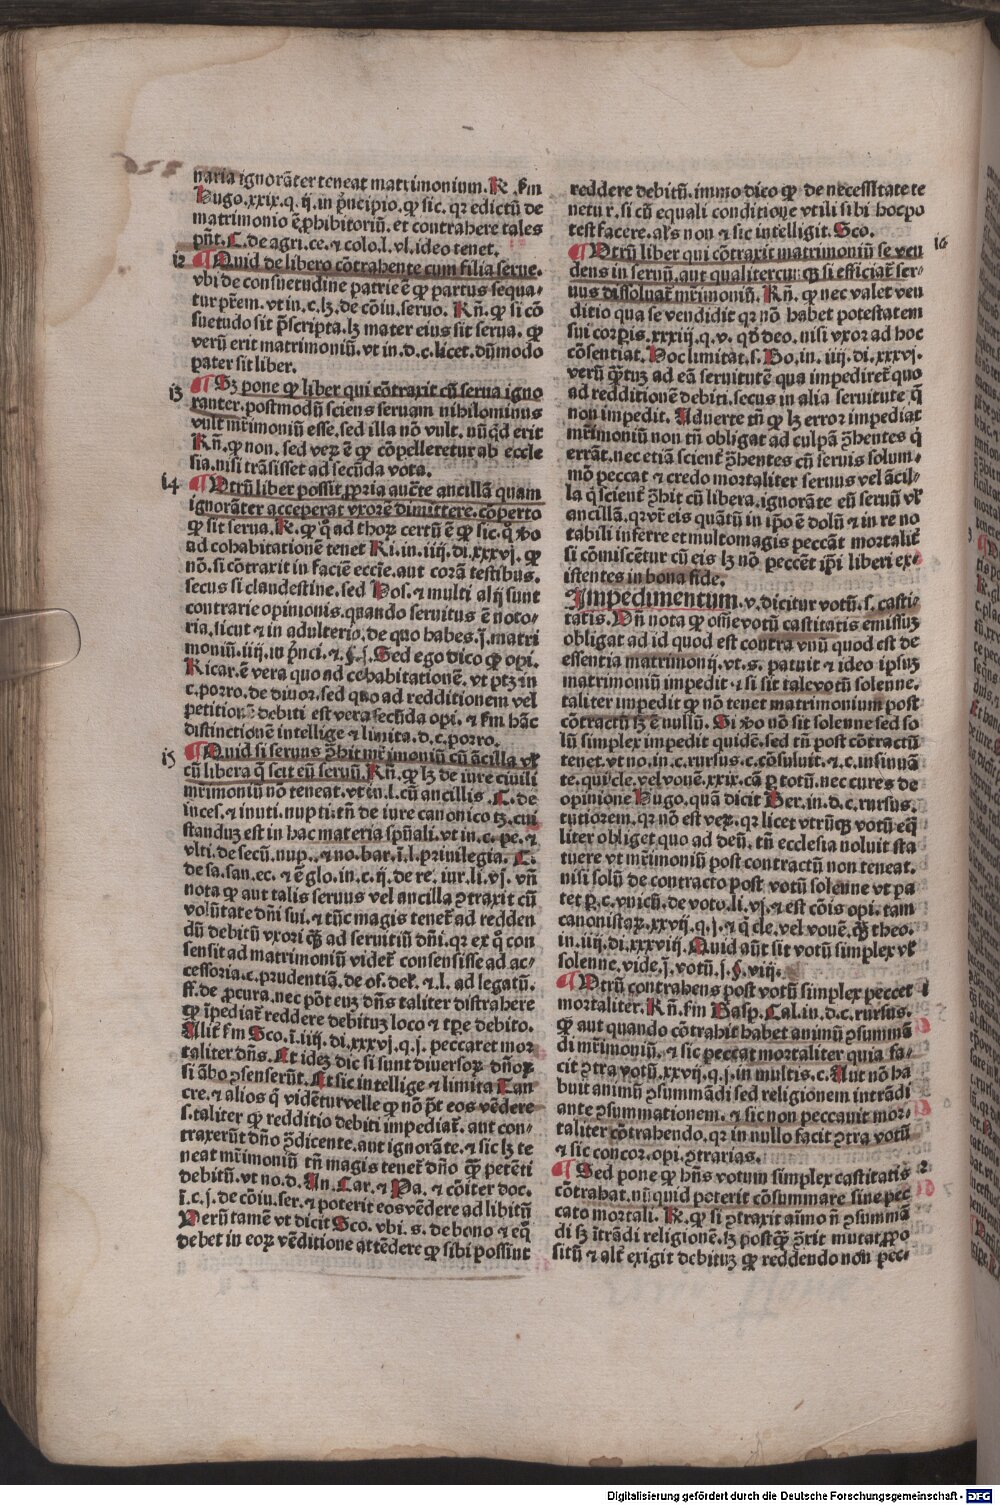 naria ignorāter teneat matrimonium. R̃. ẜm
Hugo. xxix. q. ij. in p̄ncipio. ꝙ sic. qꝛ edictū de
matrimonio ē ꝓhibitoriū. et contrahere tales
pn̄t. C. de agri. ce. ⁊ colo. l. vl. ideo tenet.
12 ¶ Quid de libero cōtrahente cum filia serue.
vbi de consuetudine patrie ē ꝙ partus sequa-
tur pr̄em. vt in. c. lꝫ. de cōiu. seruo. Rn̄. ꝙ si cō
suetudo sit p̄scripta. lꝫ mater eius sit serua. ꝙ
verū erit matrimoniū. vt in. d. c. licet. dūmodo
pater sit liber.
13 ¶ Sꝫ pone ꝙ liber qui cōtraxit cū serua igno
ranter. postmodū sciens seruam nihilominus
vult mr̄imoniū esse. sed illa nō vult. nūqd erit
Rn̄. ꝙ non. sed veꝝ ē ꝙ cōpelleretur ab eccle
sia. nisi trāsisset ad secūda vota.
14 ¶ Vtrū liber possit ꝓpria auct̄e ancillā quam
ignorāter acceperat vxorē dimittere. cōperto
ꝙ sit serua. R̃. ꝙ qͦ ad thoꝝ certū ē ꝙ sic. qͦ ꝟo
ad cohabitationē tenet Ri. in. iiij. di. xxxvj. ꝙ
nō. si cōtraxit in faciē eccl̄ie. aut corā testibus.
secus si clandestine. sed Hos. ⁊ multi alij sunt
contrarie opinionis. quando seruitus ē noto-
ria. sicut ⁊ in adulterio. de quo habes. j̄. matri
moniū. iiij. in p̄nci. ⁊. §. j. Sed ego dico ꝙ opi.
Ricar. ē vera quo ad cohabitationē. vt ptꝫ in
c. porro. de diuor. sed quo ad redditionem vel
petitionē debiti est vera secūda opi. ⁊ ẜm hāc
distinctionē intellige ⁊ limita. d. c. porro.
15 ¶ Quid si seruus ꝯ̄hit mr̄imoniū cū ācilla vl̓
cū libera q̄ scit eū seruū. Rn̄. ꝙ lꝫ de iure ciuili
mr̄imoniū nō teneat. vt in. l. cū ancillis. C. de
inces. ⁊ inuti. nupti. tn̄ de iure canonico tꝫ. cui
standuꝫ est in hac materia spūali. vt in. c. pe. ⁊
vlti. de secū. nup. ⁊ no. bar. ī. l. priuilegia. C.
de sa. san. ec. ⁊ ē glo. in. c. ij. de re. iur. li. vj. vn̄
nota ꝙ aut talis seruus vel ancilla ꝯtraxit cū
volūtate dn̄i sui. ⁊ tūc magis tenet̄ ad redden
dū debitū vxori qꝫ̄ ad seruitiū dn̄i. qꝛ ex q̄ con
sensit ad matrimoniū videt̄ consensisse ad ac-
cessoria. c. prudentiā. de of. del̓. ⁊ l. ad legatū.
ff. de ꝓcura. nec pōt euꝫ dn̄s taliter distrahere
ꝙ īpediat̄ reddere debituꝫ loco ⁊ tp̄e debito.
Alit̄ ẜm Sco. ī. iiij. di. xxxvj. q. j. peccaret mor
taliter dn̄s. Et ideꝫ dic si sunt diuersoꝝ dn̄oꝝ
si ābo ꝯsenserūt. Et sic intellige ⁊ limita Tan
cre. ⁊ alios q̄ vidētur velle ꝙ nō p̄t eos vēdere
s. taliter ꝙ redditio debiti impediat̄. aut con-
traxerūt dn̄o ꝯ̄dicente. aut ignorāte. ⁊ sic lꝫ te
neat mr̄imoniū tn̄ magis tenet̄ dn̄o qꝫ̄ petēti
debitū. vt no. d. An. Car. ⁊ Pa. ⁊ cōiter doc.
ī. c. j. de cōiu. ser. ⁊ poterit eos vēdere ad libitū
Verū tamē vt dicit Sco. vbi. s. de bono ⁊ eqͦ
debet in eoꝝ vēditione attēdere ꝙ sibi possint
reddere debitū. immo dico ꝙ de necessitate te
netur. si cū equali conditione vtili sibi hoc po
test facere. al̓s non ⁊ sic intelligit. Sco.
16 ¶ Vtrū liber qui cōtraxit matrimoniū se ven
dens in seruū. aut qualitercunqꝫ si efficiat̄ ser-
uus dissoluat̄ mr̄imoniū. Rn̄. ꝙ nec valet ven
ditio qua se vendidit qꝛ nō habet potestatem
sui corꝑis. xxxiij. q. v. qd̓ deo. nisi vxor ad hoc
cōsentiat. Hoc limitat. s. Bo. in. iiij. di. xxxvj.
verū qꝫ̄tuꝫ ad eā seruitutē qua impediret̄ quo
ad redditionē debiti. secus in alia seruitute q̄
non impedit. Aduerte tn̄ ꝙ lꝫ error impediat
mr̄imoniū non tn̄ obligat ad culpā ꝯ̄hentes q̇
errāt. nec etiā scient̄ ꝯ̄hentes cū seruis solum-
mō peccat ⁊ credo mortaliter seruus vel ācil-
la q̇ scient̄ ꝯ̄hit cū libera. ignorāte eū seruū vl̓
ancillā. qꝛ vr̄ eis quātū in ip̄o ē dolū ⁊ in re no
tabili inferre et multomagis peccāt mortalit̄
si cōmiscētur cū eis lꝫ nō peccēt ip̄i liberi ex-
istentes in bona fide.
Impedimentum. v. dicitur votū. s. casti-
tatis. Vn̄ nota ꝙ om̄e votū castitatis emissuꝫ
obligat ad id quod est contra vnū quod est de
essentia matrimonij. vt. s. patuit ⁊ ideo ipsuꝫ
matrimoniū impedit. ⁊ si sit tale votū solenne.
taliter impedit ꝙ nō tenet matrimonium post
cōtractū lꝫ ē nullū. Si ꝟo nō sit solenne sed so
lū simplex impedit quidē. sed tn̄ post cōtractū
tenet. vt no. in. c. rursus. c. cōsuluit. ⁊. c. insinuā
te. qui cle. vel vouē. xxix. cā ꝑ totū. nec cures de
opinione Hugo. quā dicit Ber. in. d. c. rursus.
tutiorem. qꝛ nō est veꝝ. qꝛ licet vtrūqꝫ votū eq̄
liter obliget quo ad deū. tn̄ ecclesia noluit sta
tuere vt mr̄imoniū post contractū non teneat.
nisi solū de contracto post votū solenne vt pa
tet ꝑ. c. vnicū. de voto. li. vj. ⁊ est cōis opi. tam
canonistaꝝ. xxvij. q. j. ⁊ q̇ cle. vel vouē. qꝫ̄ theo.
in. iiij. di. xxxviij. Quid aūt sit votū simplex vl̓
solenne. vide. j̄. votū. j. §. viij.
1 ¶ Vtrū contrahens post votū simplex peccet
mortaliter. Rn̄. ẜm Gasp. Cal. in. d. c. rursus.
ꝙ aut quando cōtrahit habet animū ꝯsummā
di mr̄imoniū. ⁊ sic peccat mortaliter quia fa-
cit ꝯtra votū. xxvij. q. j. in multis. c. Aut nō ha
buit animū ꝯsummādi sed religionem intrādi
ante ꝯsummationem. ⁊ sic non peccauit mor-
taliter cōtrahendo. qꝛ in nullo facit ꝯtra votū
⁊ sic concor. opi. ꝯtrarias.
2 ¶ Sed pone ꝙ hn̄s votum simplex castitatis
cōtrahat. nūquid poterit cōsummare sine pec
cato mortali. R̃. ꝙ si ꝯtraxit aīmo n̄ ꝯsummā
di sꝫ ītrādi religionē. lꝫ postqꝫ̄ ꝯ̄xit mutat ꝓpo
sitū ⁊ alt̄ exigit debituꝫ ꝙ reddendo non pec-
Digitalisierung gefördert durch die Deutsche Forschungsgemeinschaft - DFG